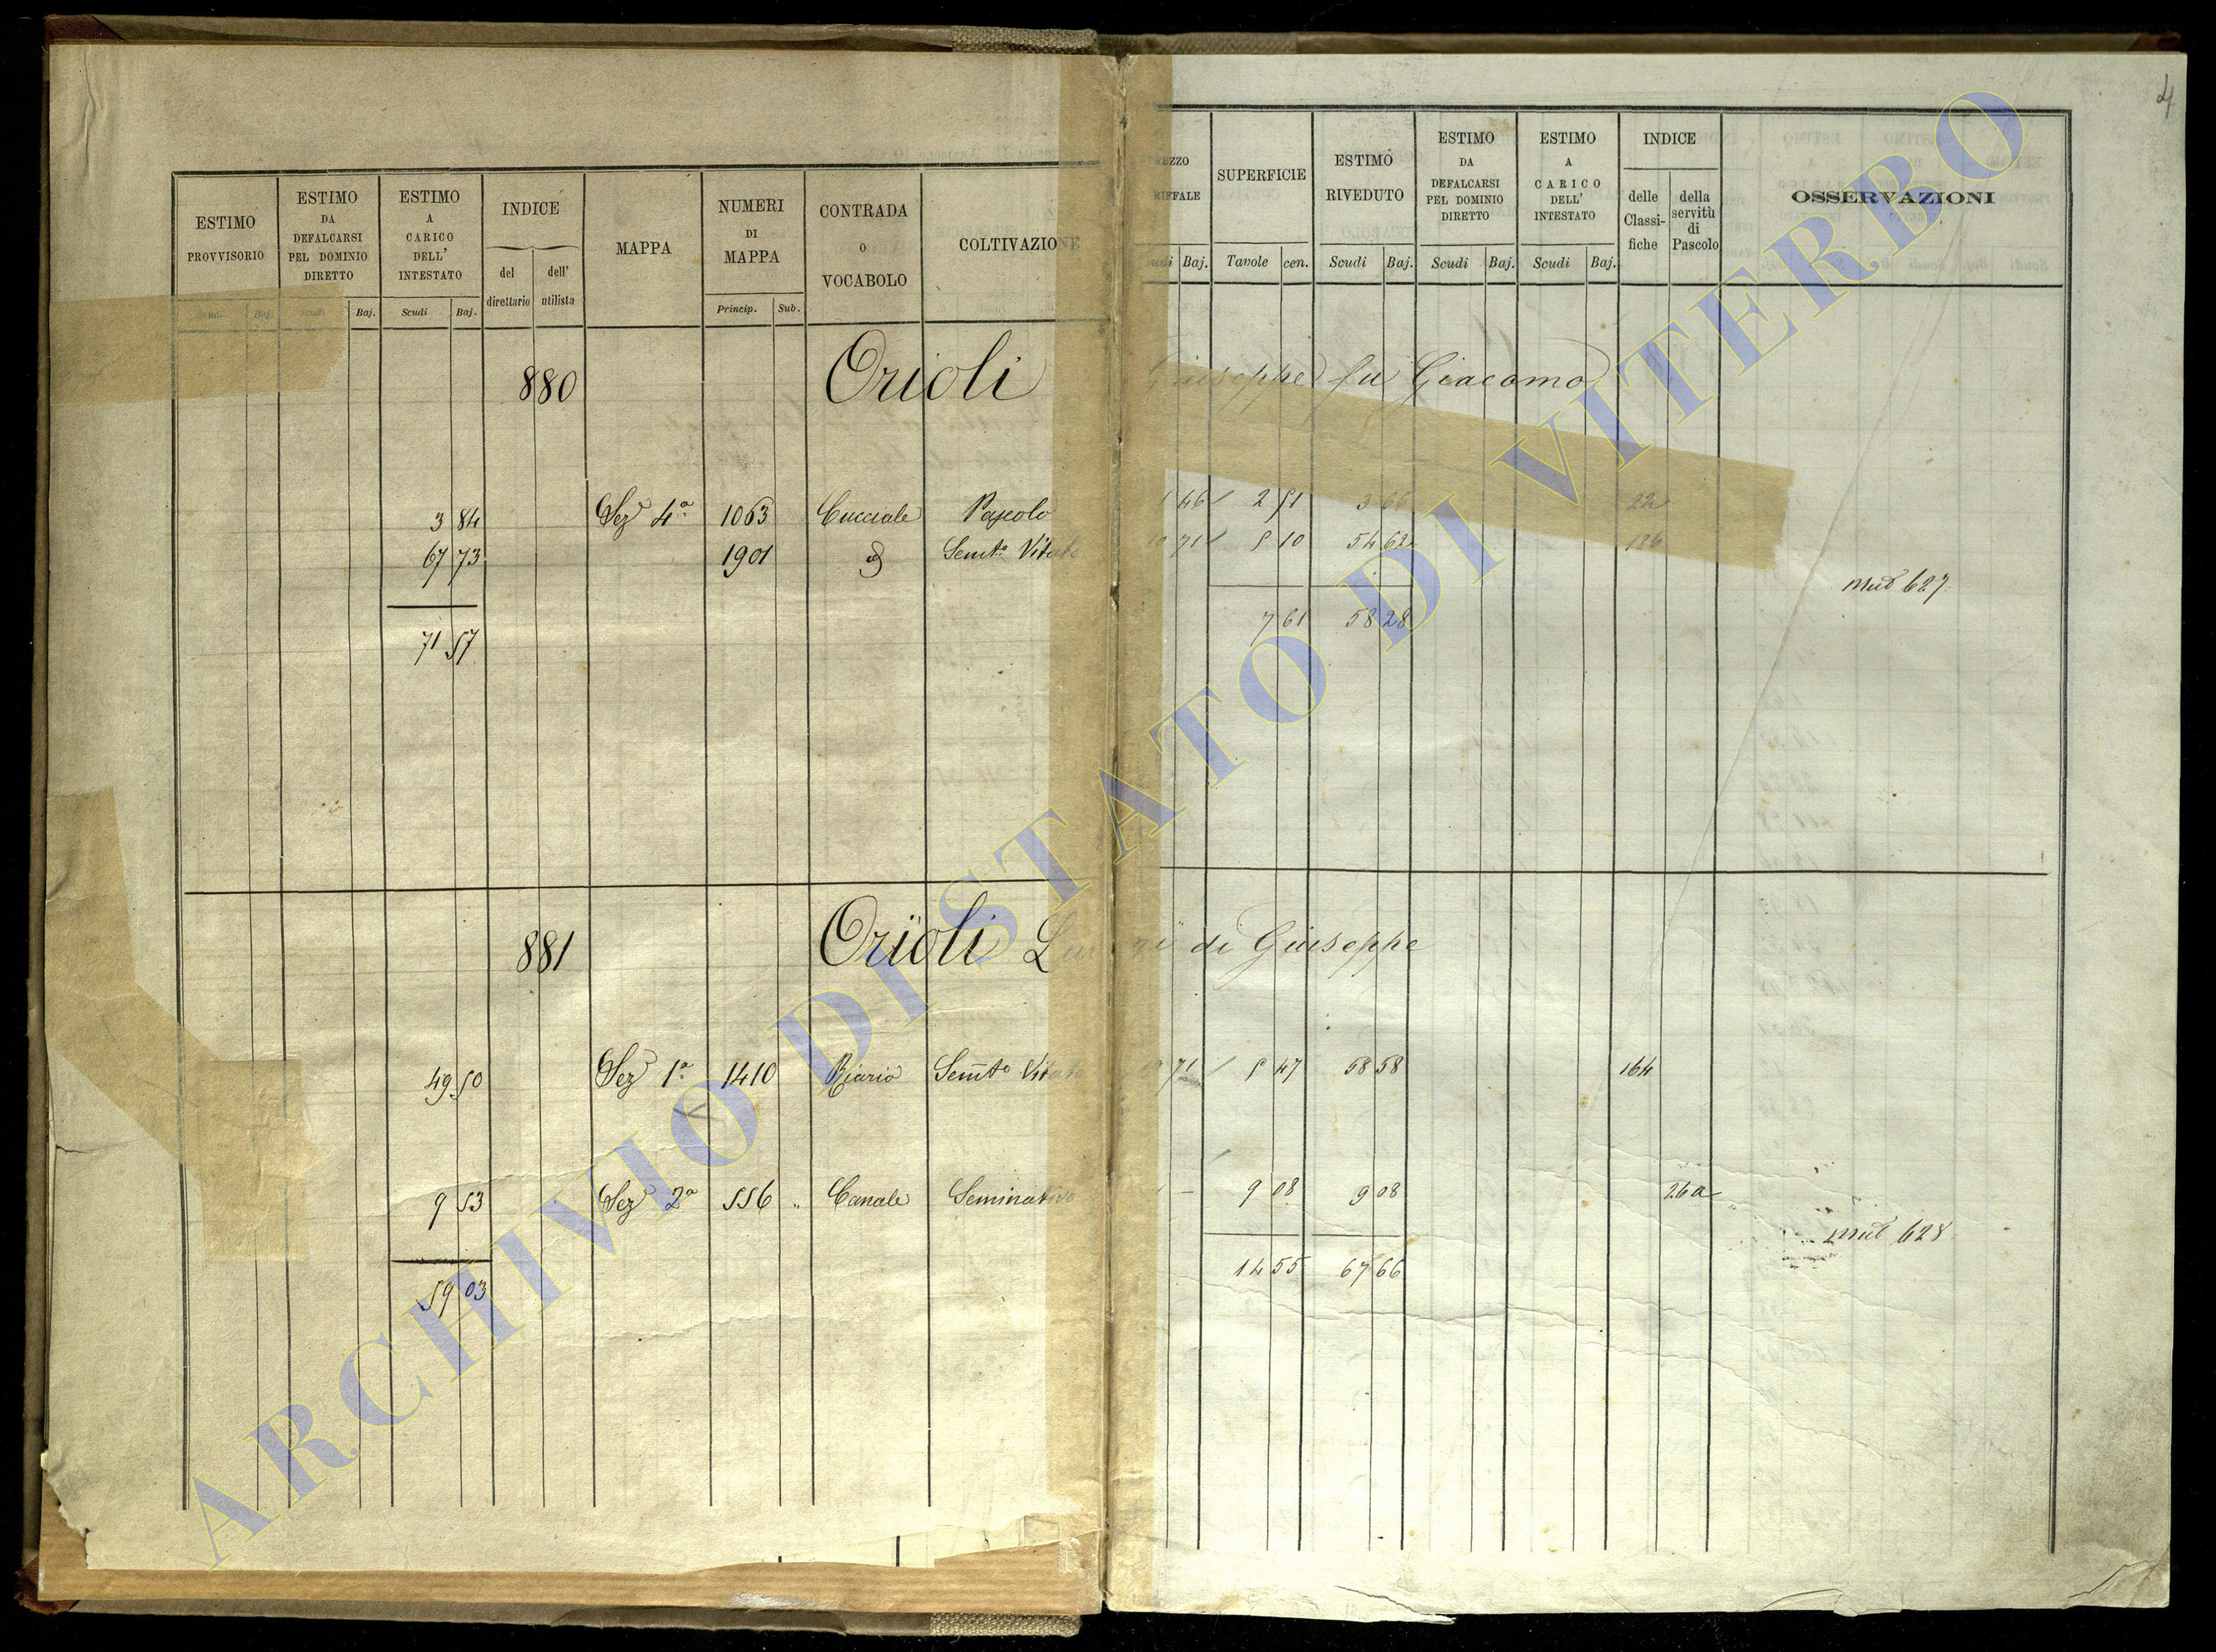 4
ESTIMO PROVVISORIO
ESTIMO DA DEFALCARSI PEL DOMINIO DIRETTO
ESTIMO A CARICO DELL' INTESTATO
INDICE
del direttario
dell' utilista
MAPPA
NUMERI DI MAPPA
CONTRADA o VOCABOLO
COLTIVAZIONE
SUPERFICIE
ESTIMO RIVEDUTO
ESTIMO DA DEFALCARSI PEL DOMINIO DIRETTO
ESTIMO A CARICO DELL' INTESTATO
INDICE
delle Classifiche
della servitù di Pascolo
OSSERVAZIONI
Baj. Scudi Baj. Princip. Sub. Baj. Tavole cen. Scudi Baj. Scudi Baj. Scudi Baj.
880 Orioli Giuseppe fu Giacomo
3 84 Sez 4ª 1063 Cucciale Pascolo 1 46 2 51 3 66 22
67 73 1901 Semto Vitato 10 71 5 10 54 62 186
Mut 627
71 57 7 61 58 28
881 Orioli di Giuseppe
49 50 Sez 1ª 1410 Riario Semto Vitato 71 5 47 58 58 164
9 53 Sez 2ª 556 " Canale Seminativo 1 — 9 08 9 08 26a
mut 628
59 03 14 55 67 66
ARCHIVIO DI STATO DI VITERBO